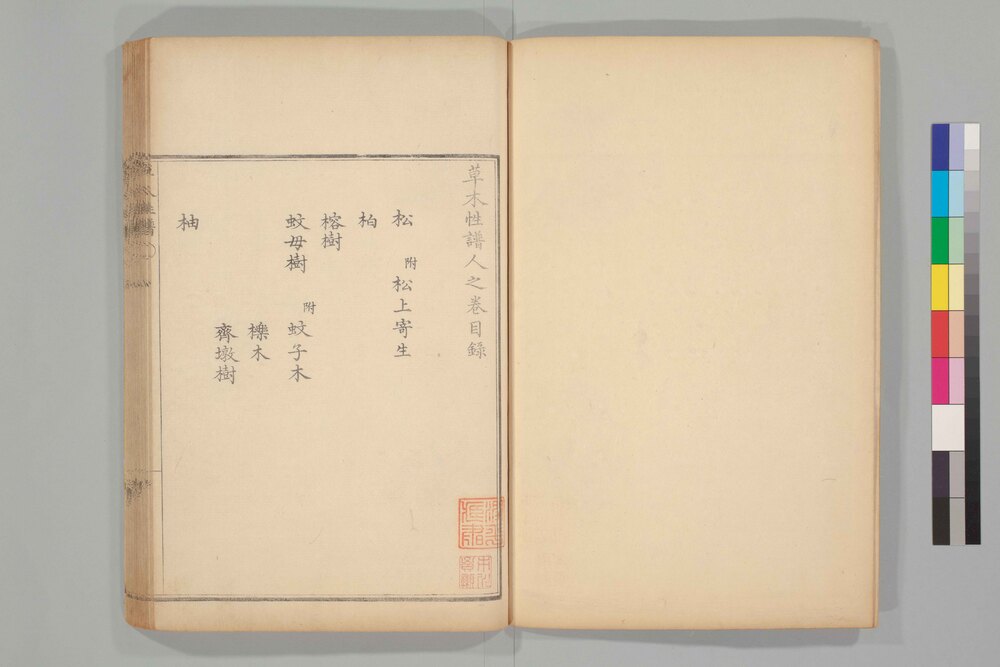 草木性譜人之巻目錄
松
附 松上寄生
柏
榕樹
蚊母樹
附 蚊子木
櫟木
齊墩樹
柚